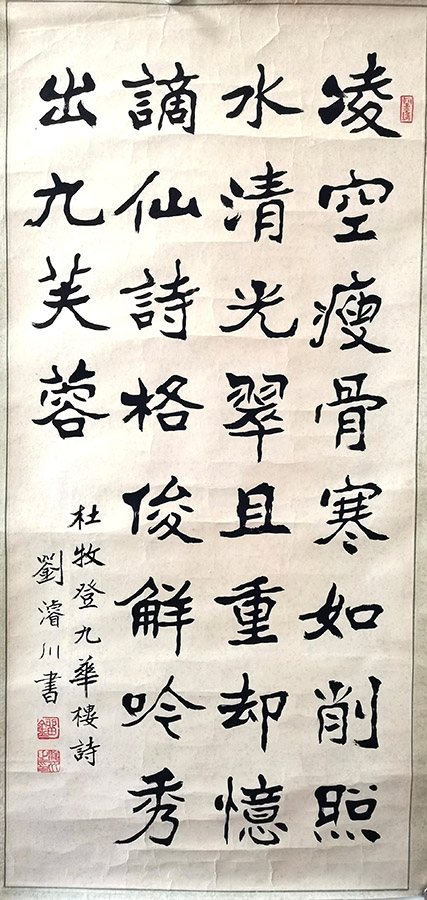 凌空瘦骨寒如削照
水清光翠且重却憶
謫仙詩格俊解吟秀
出九芙蓉
杜牧登九華樓詩
劉濬川書